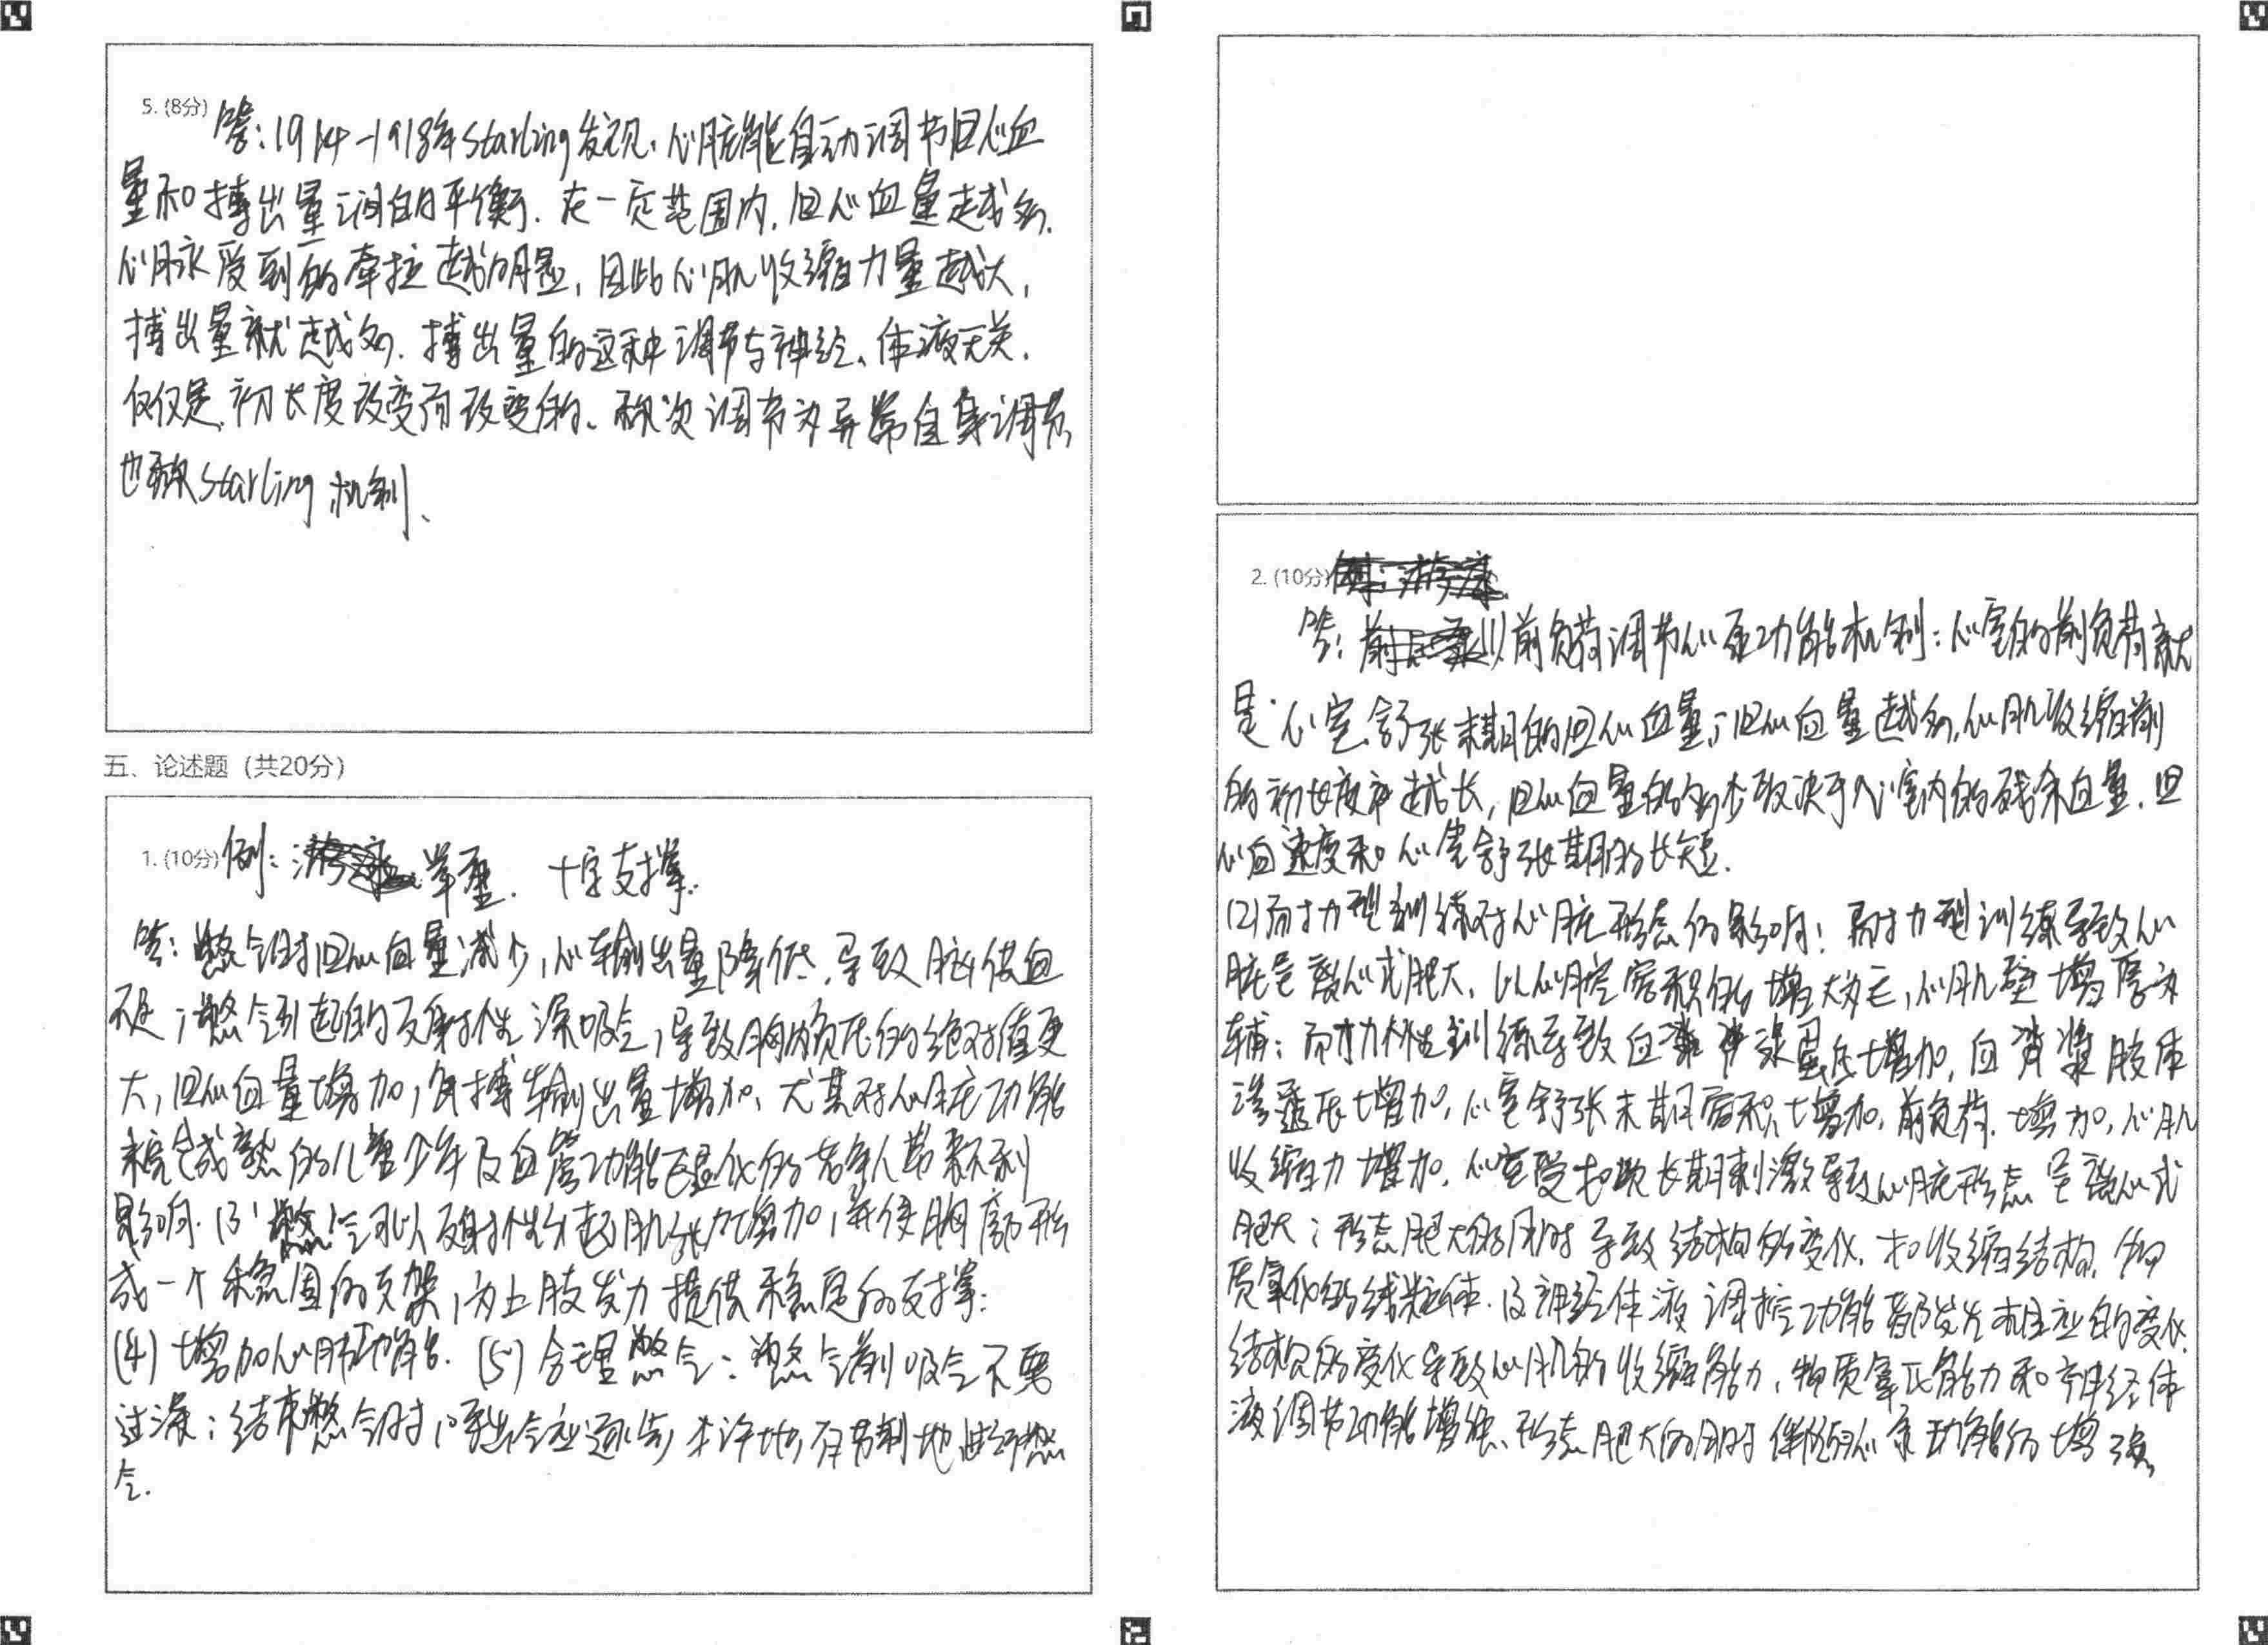 5. (8分) 答：1914-1918年Starling发现，心脏能自动调节回心血
量和搏出量间的平衡．在一定范围内，回心血量越多．
心脏受到的牵拉越明显，因此心肌收缩力量越大，
搏出量就越多．搏出量的这种调节与神经、体液无关．
仅仅是初长度改变而改变的。称次调节为异常自身调节
也称Starling机制、
五、论述题（共20分）
1. (10分) 例：举重． 十字支撑．
答：憋气时回心血量减少，心输出量降低，导致脑供血
不足；憋气引起的反射性深吸气，导致胸内负压的绝对值更
大，回心血量增加，每搏输出量增加、尤其对心脏功能
未完全成熟的儿童少年及血管功能已退化的老年人带来不利
影响．(3) 憋气可以反射性引起肌张力增加，并使胸廓形
成一个稳固的支架，为上肢发力提供稳定的支撑；
(4) 增加心肺功能． (5) 合理憋气：憋气前吸气不要
过深；结束憋气时，呼出气应逐步 有节制地进行憋
气．
2. (10分)
答： 以前负荷调节心泵功能机制：心室的前负荷就
是心室舒张末期的回心血量；回心血量越多，心肌收缩前
的初长度越长，回心血量的多少取决于心室内的残余血量．回
心血速度和心室舒张期的长短．
(2) 耐力型训练对心脏形态的影响：耐力型训练导致心
脏呈离心式肥大、以心腔容积的增大为主，心肌壁增厚为
辅；而耐力性训练导致血 增加，血浆胶体
渗透压增加，心室舒张末期容积增加，前负荷．增加，心肌
收缩力增加．心室受 长期刺激导致心脏形态呈离心式
肥大；形态肥大的同时导致结构的变化、如收缩结构．物
质氧化的线粒体．及神经体液调控功能都发生相应的变化．
结构的变化导致心肌的收缩能力、物质氧化能力和神经体
液调节功能增强、形态肥大的同时伴随着心泵功能的增强